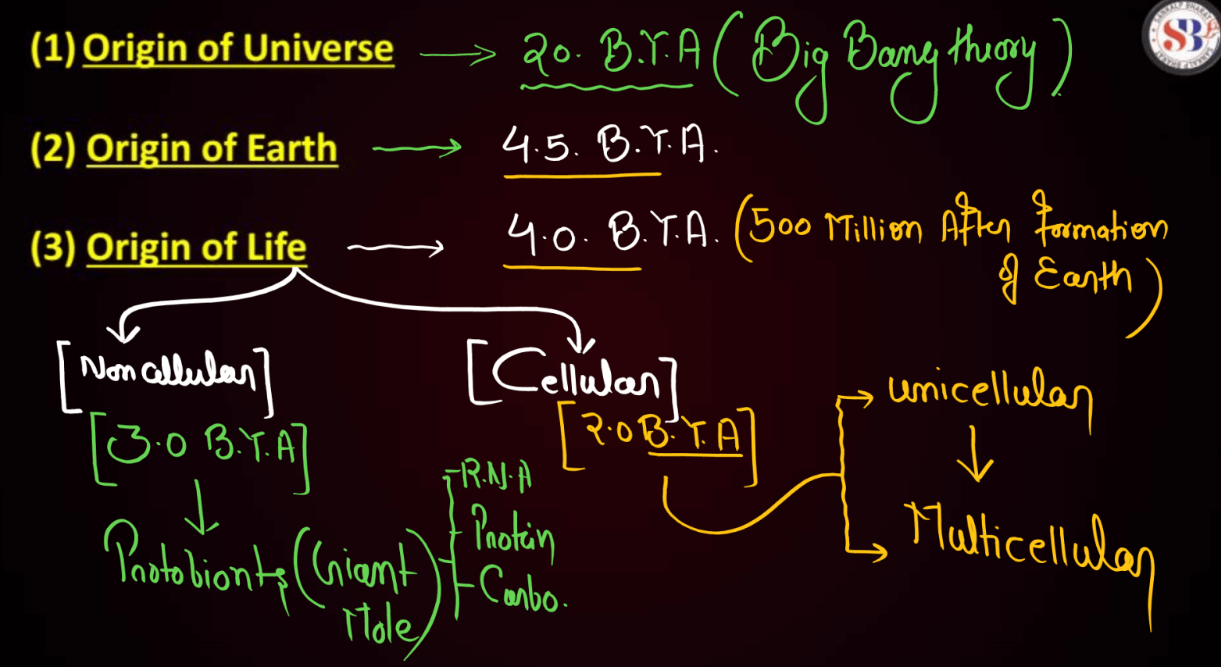 (1) Origin of Universe → 20. B.Y.A (Big Bang theory)
SB
(2) Origin of Earth → 4.5. B.Y.A.
(3) Origin of Life → 4.0. B.Y.A. (500 Million After formation
of Earth)
[Noncellular] [Cellular]
[3.0 B.Y.A] [2.0 B.Y.A] unicellular
Protobionts (Giant Mole) R.N.A
Protein
Carbo.
Multicellular